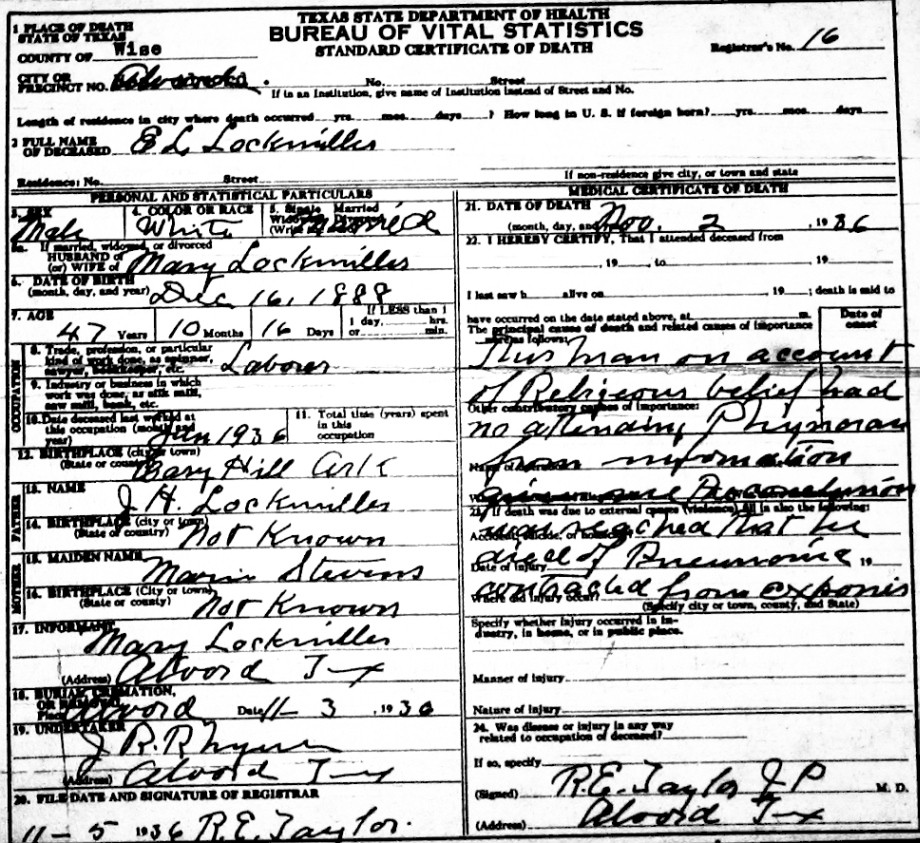 TEXAS STATE DEPARTMENT OF HEALTH
BUREAU OF VITAL STATISTICS
STANDARD CERTIFICATE OF DEATH
1 PLACE OF DEATH
STATE OF TEXAS
COUNTY OF Wise
Registrar's No. 16
CITY OR
PRECINCT NO. No. Street
If in an Institution, give name of Institution instead of Street and No.
Length of residence in city where death occurred yrs. mos. days ? How long in U. S. if foreign born? yrs. mos. days
2 FULL NAME
OF DECEASED E L Lockmiller
Residence: No. Street If non-residence give city, or town and state
PERSONAL AND STATISTICAL PARTICULARS
3. SEX 4. COLOR OR RACE 5. Single Married
Widowed
(Write
Male White Married
5a. If married, widowed, or divorced
HUSBAND of
(or) WIFE of Mary Lockmiller
6. DATE OF BIRTH
(month, day, and year) Dec 16, 1888
7. AGE If LESS than 1
47 Years 10 Months 16 Days 1 day, hrs.
or min.
OCCUPATION
8. Trade, profession, or particular
kind of work done, as spinner,
sawyer, bookkeeper, etc. Laborer
9. Industry or business in which
work was done, as silk mill,
saw mill, bank, etc.
10. Date deceased last worked at
this occupation (month and
year) Jan 1936
11. Total time (years) spent
in this
occupation
12. BIRTHPLACE (city or town)
(State or county) Hill Ark
FATHER
13. NAME J. H. Lockmiller
14. BIRTHPLACE (city or town)
(State or county) Not Known
MOTHER
15. MAIDEN NAME Stevens
16. BIRTHPLACE (City or town)
(State or county) Not Known
17. INFORMANT Mary Lockmiller
(Address) Alvord Tex
18. BURIAL, CREMATION,
OR REMOVAL
Place Alvord Date 11 3 , 1936
19. UNDERTAKER J R Rhyne
(Address) Alvord Tex
20. FILE DATE AND SIGNATURE OF REGISTRAR
11 - 5 1936 R.E. Taylor.
MEDICAL CERTIFICATE OF DEATH
21. DATE OF DEATH
(month, day, and Nov. 2 , 1936
22. I HEREBY CERTIFY, That I attended deceased from
, 19 , to , 19
I last saw h alive on , 19 ; death is said to
have occurred on the date stated above, at m.
The principal cause of death and related causes of importance
were as follows: Date of
onset
This man on account
of Religeous belief had
Other contributory causes of importance:
no attending
from information
conclusion
23. If death was due to external causes (violence) fill in also the following:
was reached that he
Accident, suicide, or
died of Pneumonia
Date of injury 19
contracted from
Where did injury occur?
(Specify city or town, county, and State)
Specify whether injury occurred in in-
dustry, in home, or in public place.
Manner of injury
Nature of injury
24. Was disease or injury in any way
related to occupation of deceased?
If so, specify
(Signed) R.E. Taylor J P M. D.
(Address) Alvord Tex